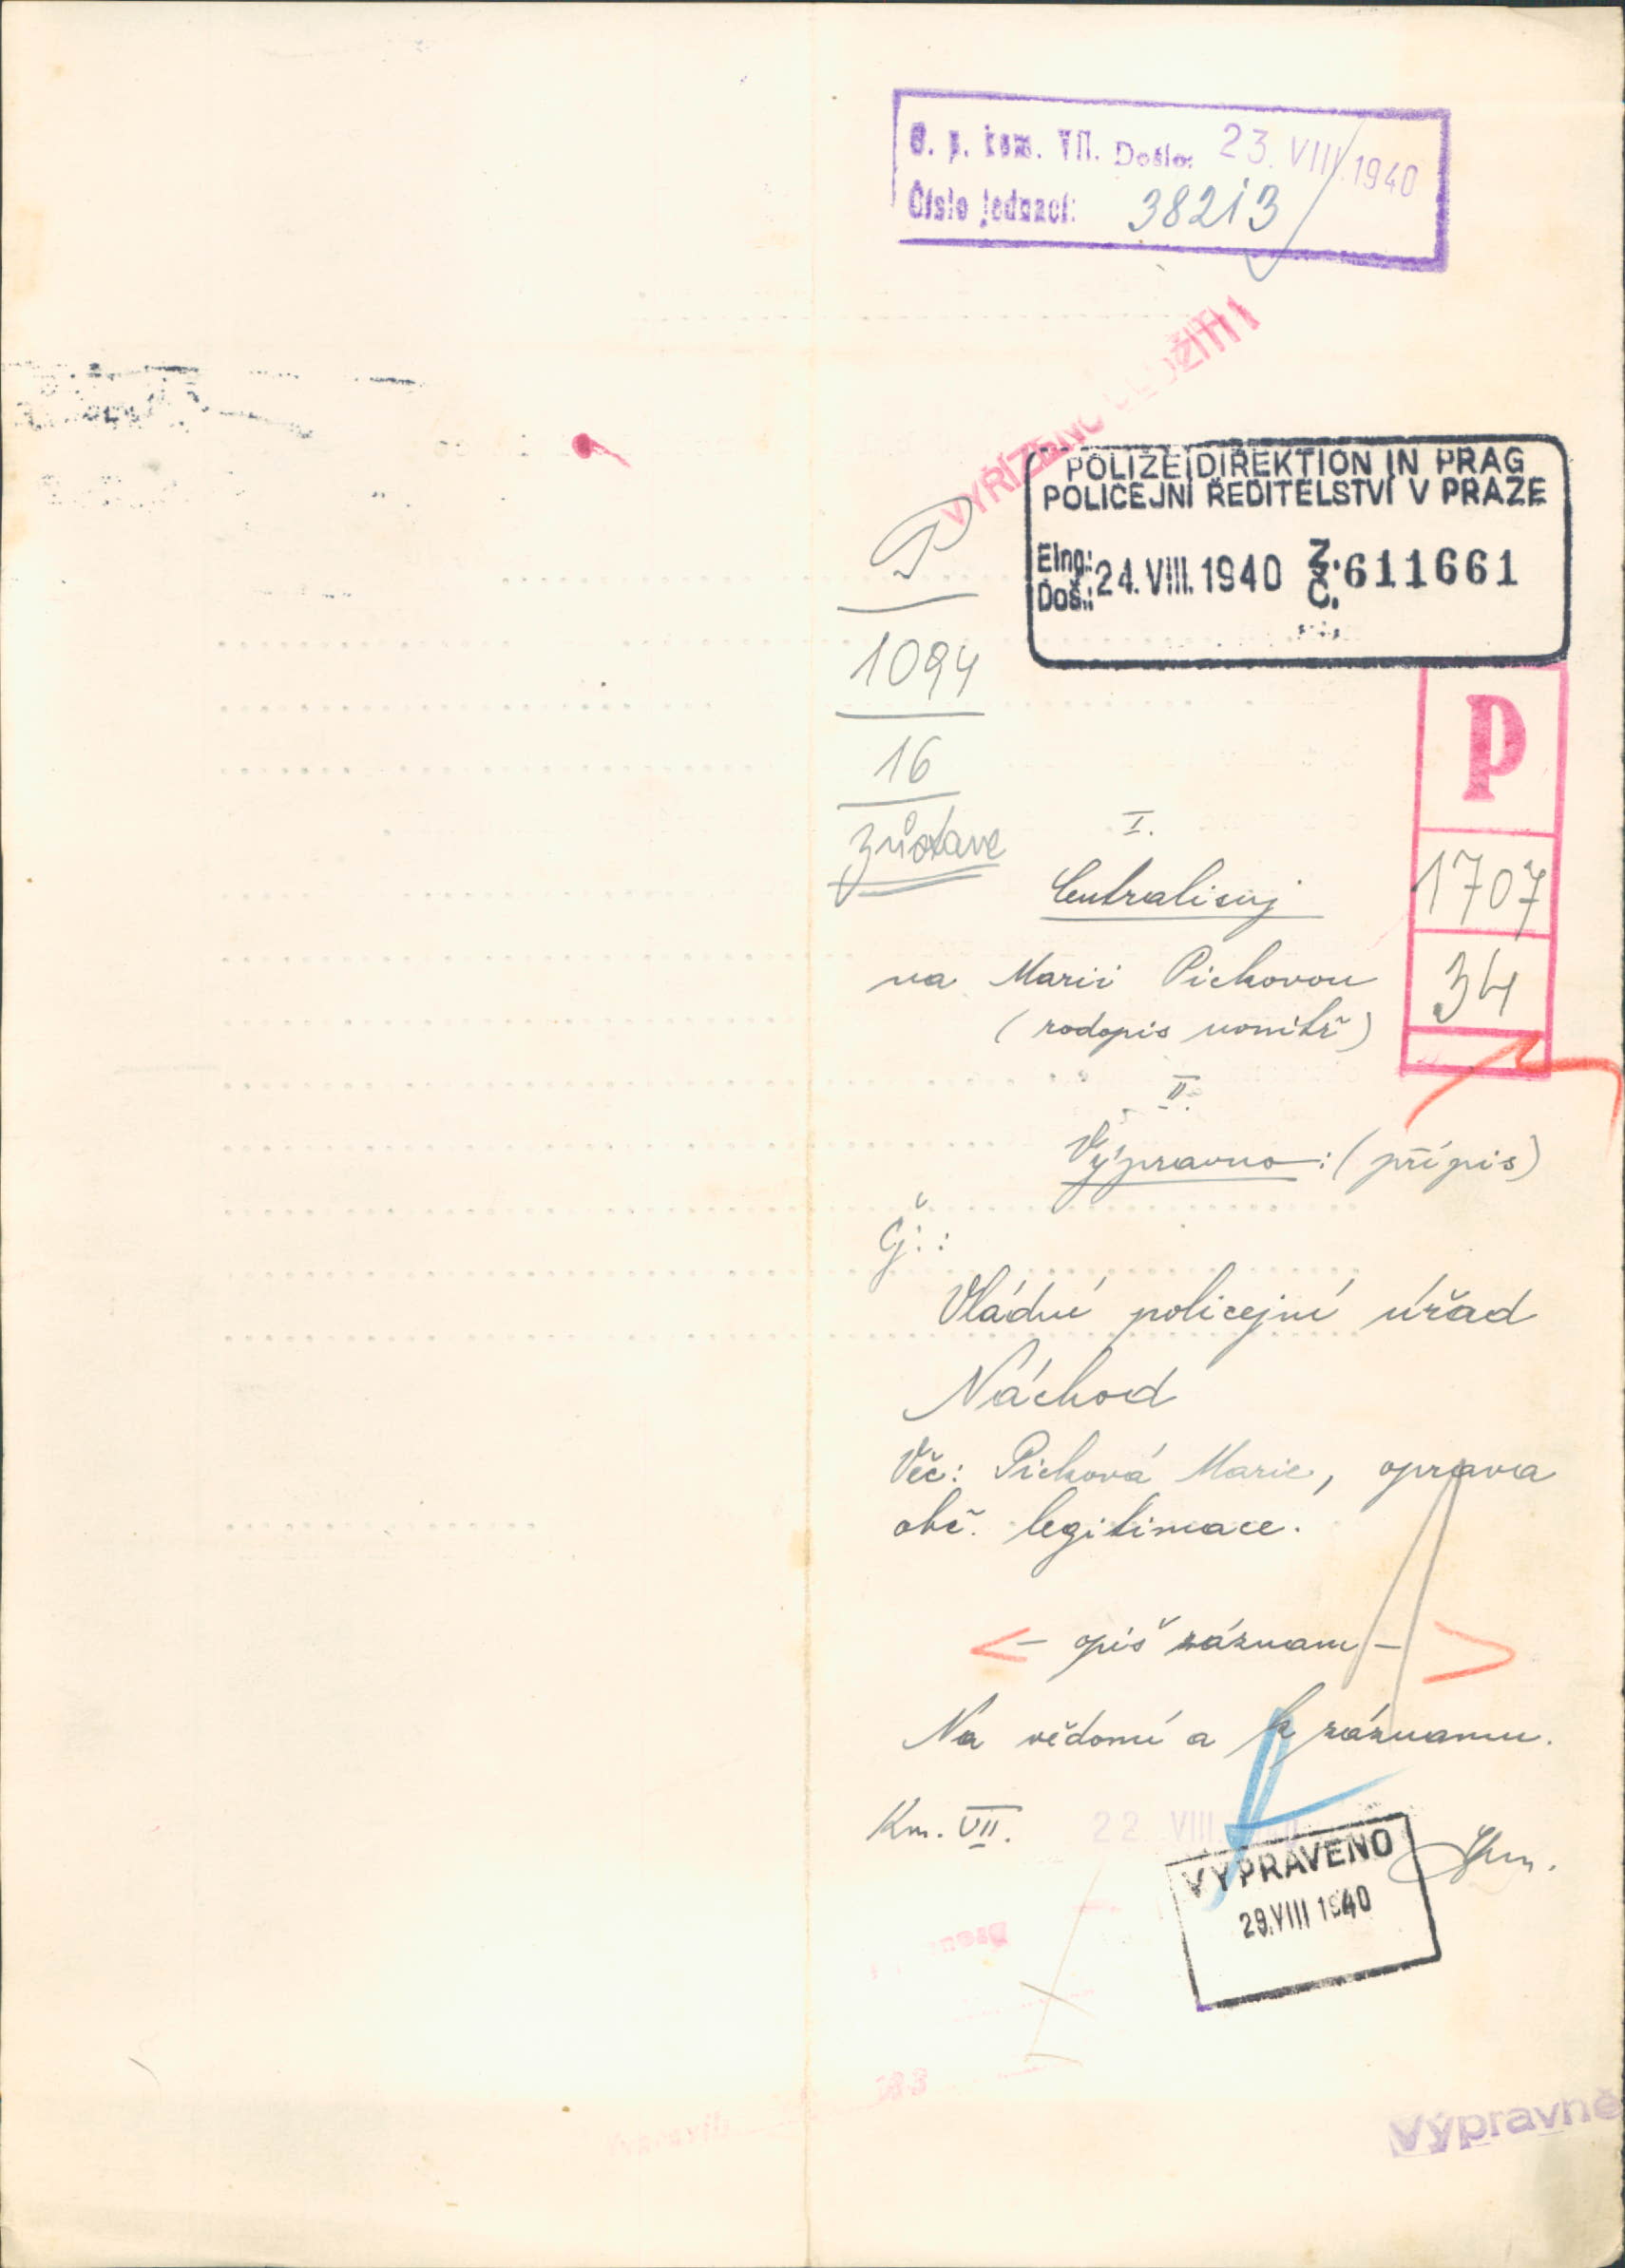 O. p. kom. VII. Došlo: 23. VIII. 1940
Číslo jednací: 38213
VYŘÍZENO
POLIZEIDIREKTION IN PRAG
POLICEJNÍ ŘEDITELSTVÍ V PRAZE
Eing.:
Doš.: 24. VIII. 1940 Z. Č. 611661
P
1094
16
zůstane
P
1707
34
I.
Centralisuj
na Marii Pickovou
(rodopis uvnitř)
II.
Výpravno: (přípis)
Čj.:
Vládní policejní úřad
Náchod
Věc: Picková Marie, oprava
obč. legitimace.
- opiš záznam -
Na vědomí a k záznamu.
Km. VII.
22 VIII.
VYPRAVENO
29. VIII 1940
Výpravně